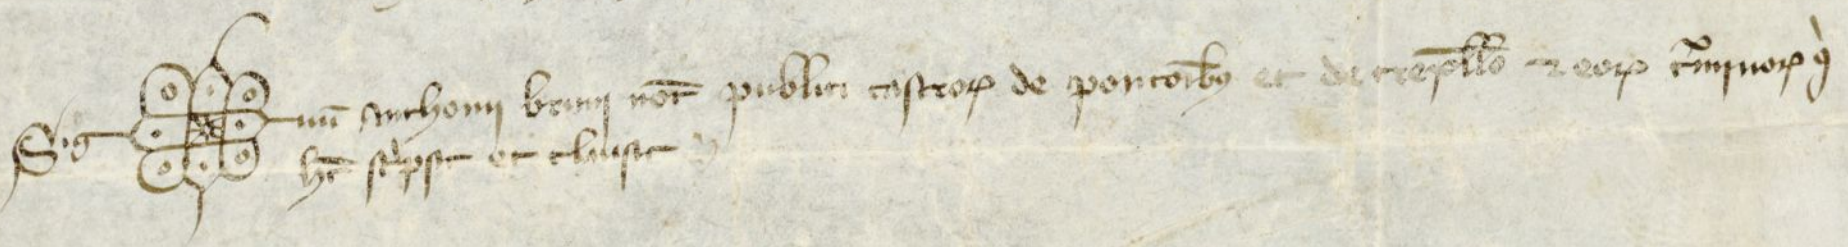 Sig num Anthonii bruni not publici castror de pontoibus et de trepollo et eor tminor q
hec scripsit et clausit